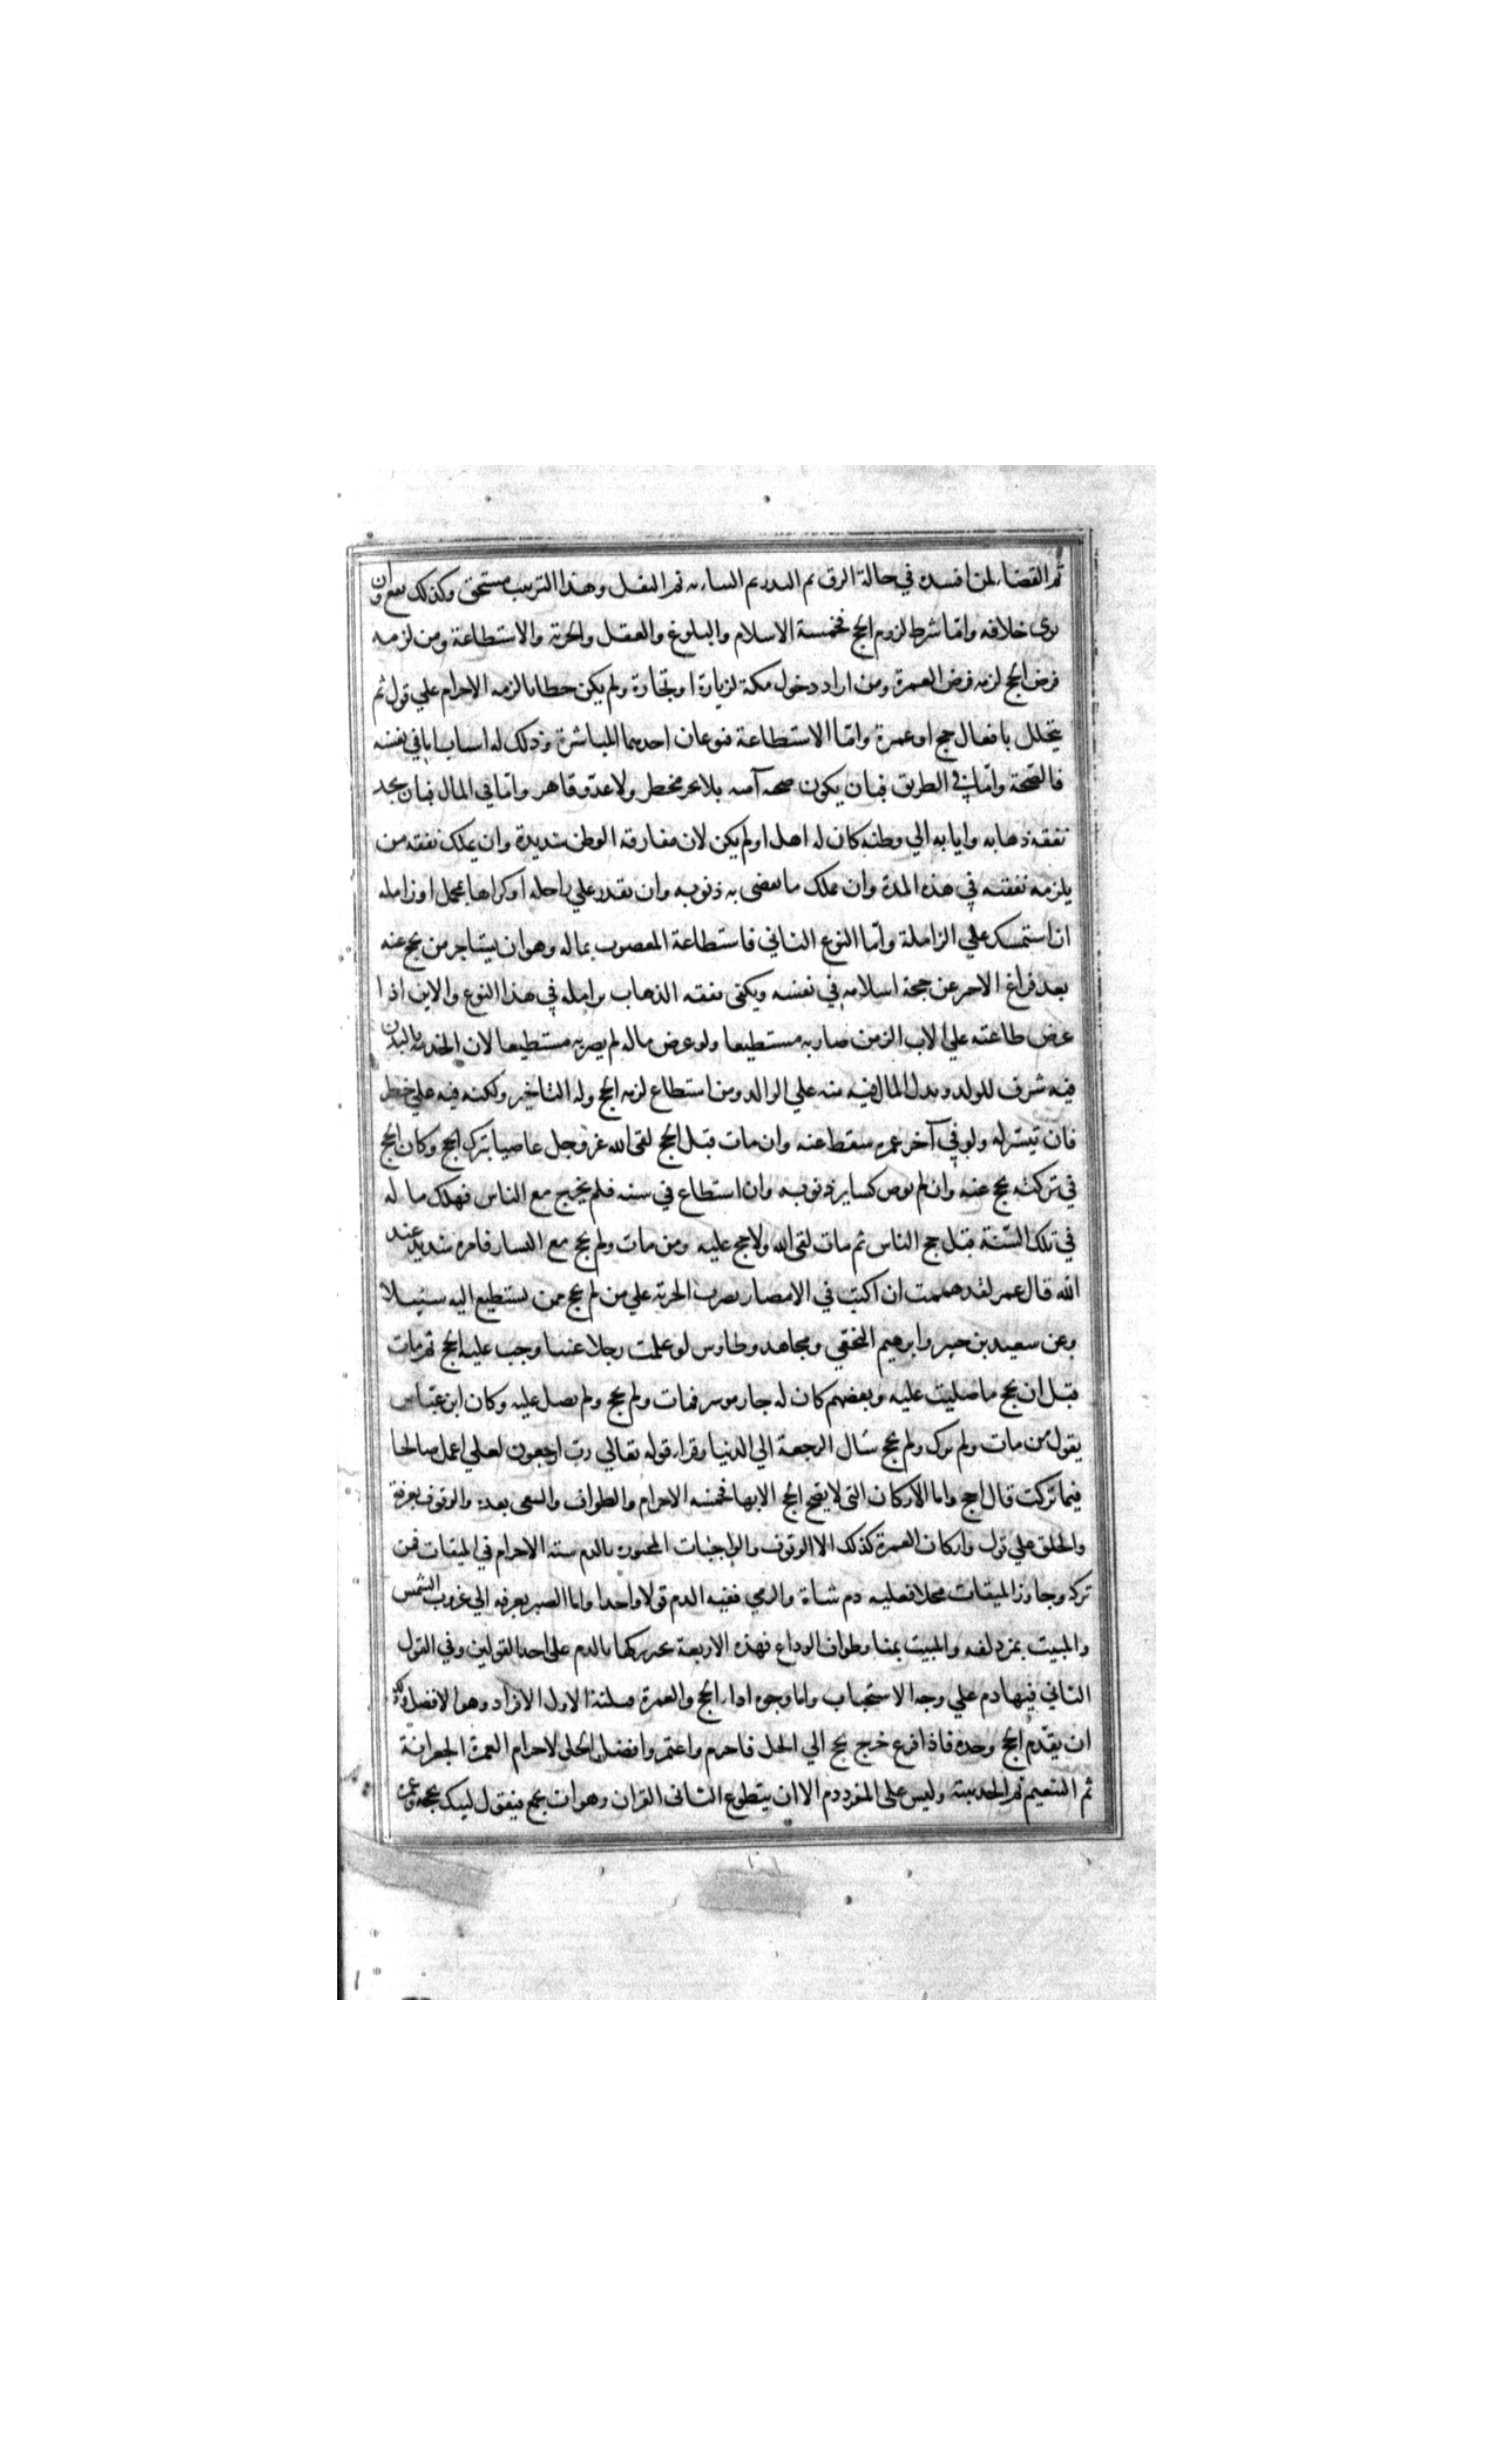 ثم القضاء لمن افسده في حالة الرق ثم النذر ثم النيابه ثم النفل وهذا الترتيب مستحق وكذلك يقع وان
نوى خلافه واما شرط لزوم الحج فخمسة الاسلام والبلوغ والعقل والحرية والاستطاعة ومن لزمه
فرض الحج لزمه فرض العمرة ومن اراد دخول مكة لزيارة او تجارة ولم يكن حطابا لزمه الاحرام علي قول ثم
يتحلل بافعال حج او عمرة واما الاستطاعة فنوعان احدهما المباشرة وذلك له اسباب اما في نفسه
فالصحة واما في الطريق فبان يكون خصبه آمنه بلا بحر مخطر ولا عدو قاهر واما في المال فبان يجد
نفقه ذهابه وايابه الي وطنه كان له اهل او لم يكن لان مفارقه الوطن شديدة وان يملك نفقه من
يلزمه نفقته في هذه المدة وان يملك ما يقضي به ذنوبه وان يقدر علي راحله او كراها بمحمل او زامله
ان استمسك علي الزاملة واما النوع الثاني فاستطاعة المعضوب بماله وهو ان يستاجر من يحج عنه
بعد فراغ الاجير عن حجة اسلامه في نفسه ويكفي نفقه الذهاب بزامله في هذا النوع والابن اذا
عرض طاعته علي الاب الزمن صار به مستطيعا ولو عرض ماله لم يصر به مستطيعا لان الخدمة بالبدن
فيه شرف للولد وبذل المال فيه منه علي الوالد ومن استطاع لزمه الحج وله التاخير ولكنه فيه علي خطر
فان تيسر له ولو في آخر عمره سقط عنه وان مات قبل الحج لقي الله عز وجل عاصيا بترك الحج وكان الحج
في تركته يحج عنه وان لم يوص كساير ذنوبه وان استطاع في سنه فلم يخرج مع الناس فهلك ماله
في تلك السنة قبل حج الناس ثم مات لقي الله ولا حج عليه ومن مات ولم يحج مع اليسار فامره شديد عند
الله قال عمر لقد هممت ان اكتب في الامصار بضرب الجزية علي من لم يحج ممن يستطيع اليه سبيلا
وعن سعيد بن جبير وابرهيم النخعي ومجاهد وطاوس لو علمت رجلا غنيا وجب عليه الحج ثم مات
قبل ان يحج ما صليت عليه وبعضهم كان له جار موسر فمات ولم يحج ولم يصل عليه وكان ابن عباس
يقول من مات ولم يزك ولم يحج سال الرجعة الي الدنيا وقراء قوله تعالي رب ارجعون لعلي اعمل صالحا
فيما تركت قال احج واما الاركان التي لا يصح الحج الا بها فخمسه الاحرام والطواف والسعي بعده والوقوف بعرفة
والحلق علي قول واركان العمرة كذلك الا الوقوف والواجبات المجبوره بالدم سته الاحرام في الميقات فمن
تركه وجاوز الميقات محلا فعليه دم شاة والرمي ففيه الدم قولا واحدا واما الصبر بعرفه الي غروب الشمس
والمبيت بمزدلفه والمبيت بمنا وطواف الوداع فهذه الاربعة يجبر تركها بالدم على احد القولين وفي القول
الثاني فيها دم علي وجه الاستحباب واما وجوه اداء الحج والعمرة فثلثة الاول الافراد وهو الافضل
ان يقدم الحج وحده فاذا فرغ خرج الي الحل فاحرم واعتمر وافضل الحل لاحرام العمرة الجعرانة
ثم التنعيم ثم الحديبية وليس على المفرد دم الا ان يتطوع الثاني القران وهو ان يجمع فيقول لبيك بحجة وعمرة